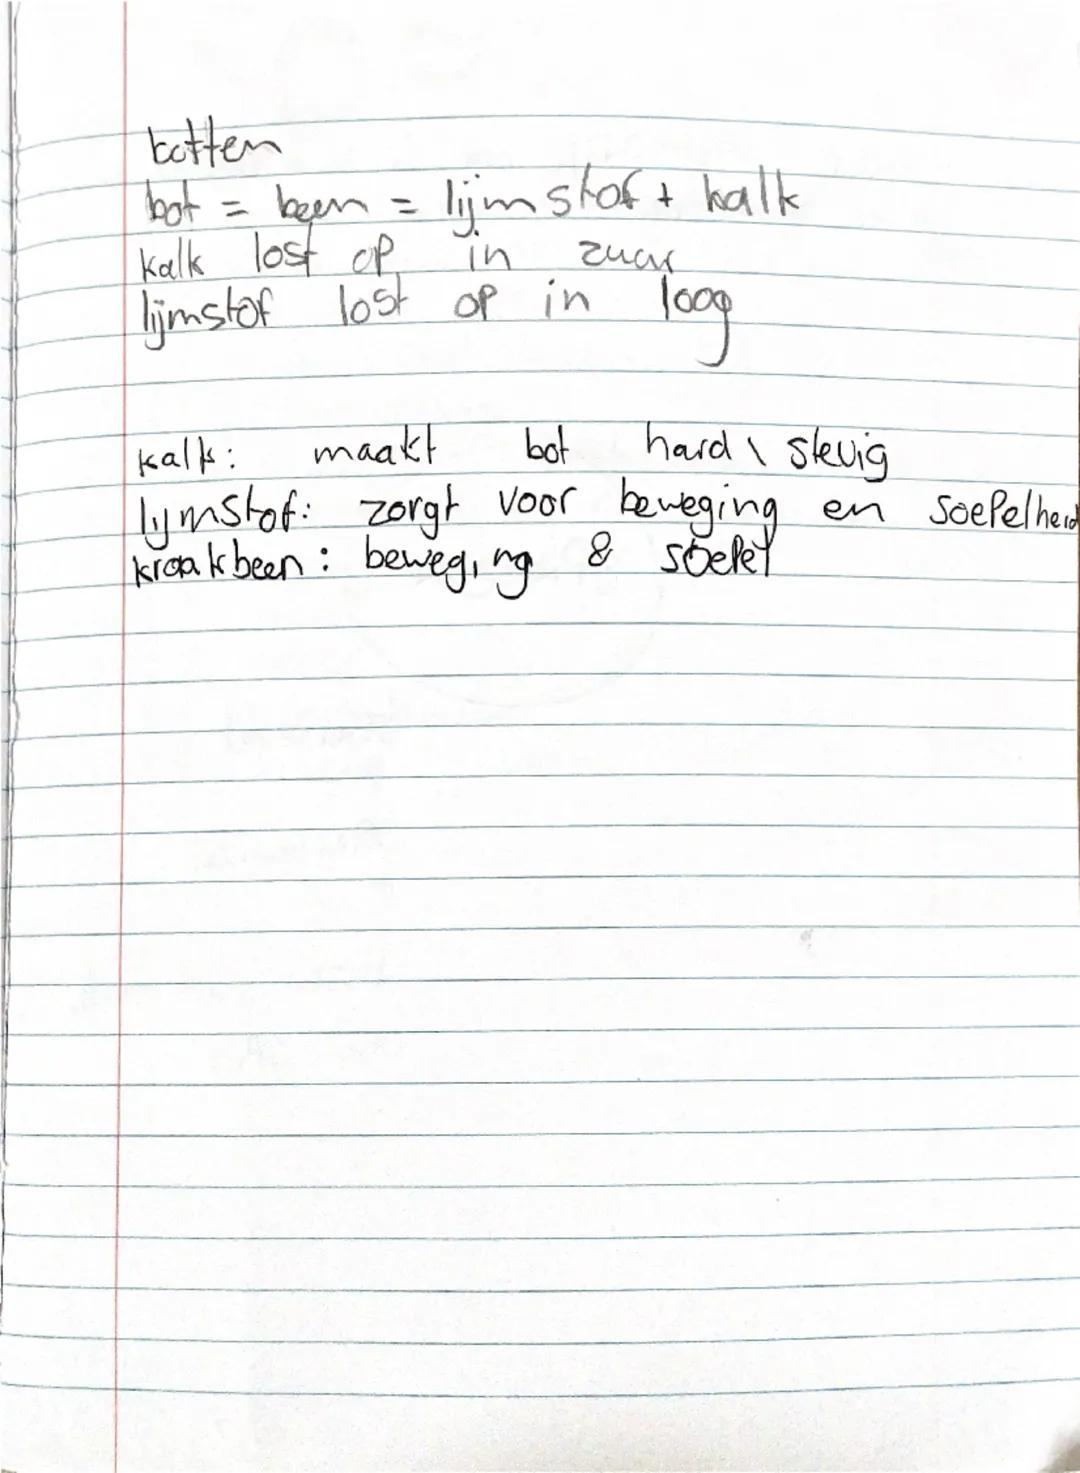 botten
bot = been = lijmstof + kalk
kalk lost op in zuur
lijmstof lost op in loog
kalk: maakt bot hard \ stevig
lijmstof: zorgt voor beweging en soepelheid
kraakbeen: beweging & soepel